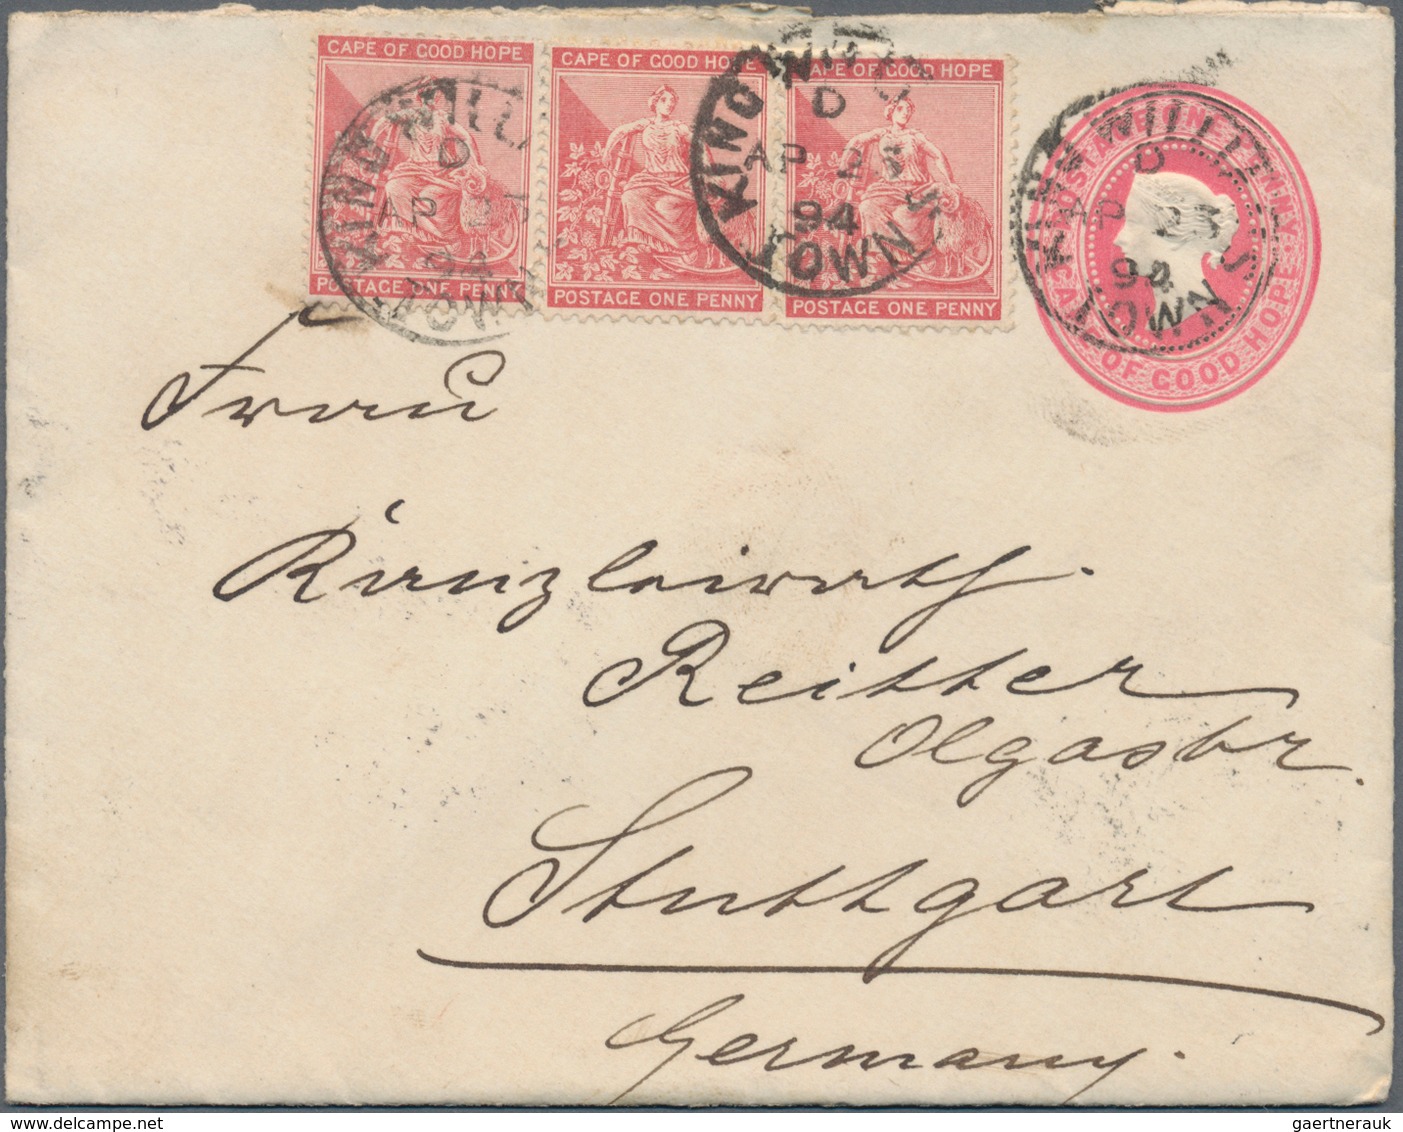 CAPE OF GOOD HOPE
POSTAGE ONE PENNY
CAPE OF GOOD HOPE
POSTAGE ONE PENNY
CAPE OF GOOD HOPE
POSTAGE ONE PENNY
KING WILLI
D
AP 23
94
TOWN
KING WILLI
D
AP 23
94
S TOWN
KING WILLI
D
AP 23
94
S TOWN
POSTAGE ONE PENNY
CAPE OF GOOD HOPE
Frau
Kanzleirath.
Reitter
Olgastr.
Stuttgart
Germany.
gaertnerauk